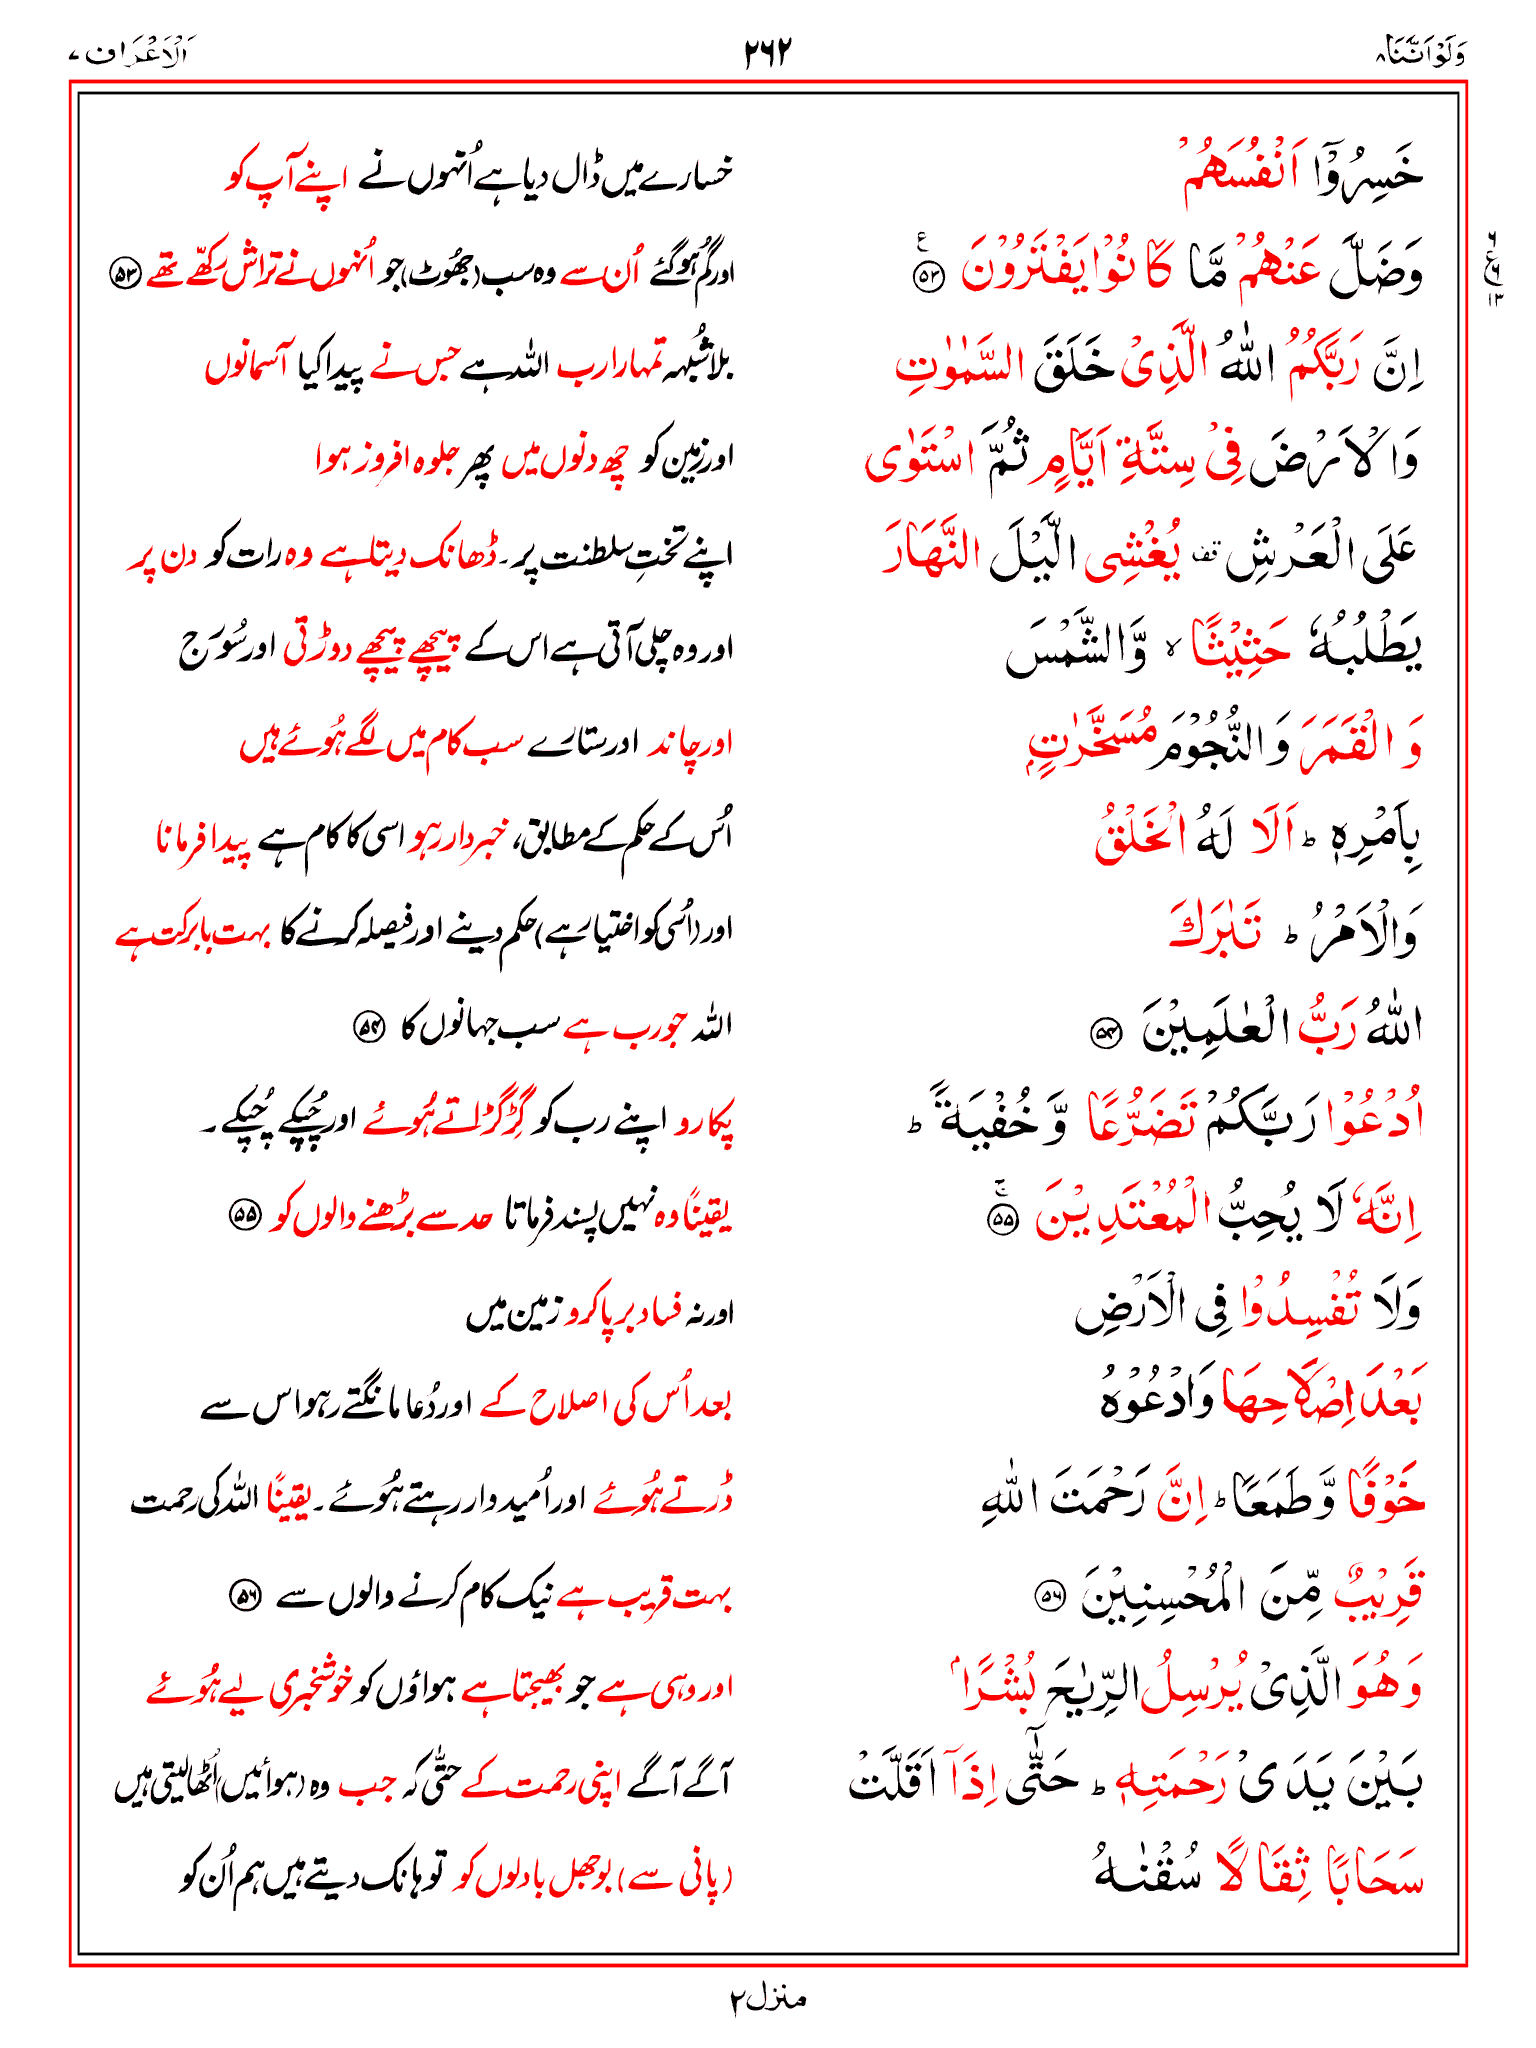 وَلَوْاَنَّنَا ۸ ۲۶۲ اَلْاَعْرَاف ۷
خَسِرُوْۤا اَنْفُسَهُمْ خسارے میں ڈال دیا ہے اُنہوں نے اپنے آپ کو
وَضَلَّ عَنْهُمْ مَّا كَانُوْا يَفْتَرُوْنَ ۵۳ ع اور گُم ہو گئے اُن سے وہ سب (جھُوٹ) جو اُنہوں نے تراش رکھّے تھے ۵۳
۶ ع ۶ ۱۳
اِنَّ رَبَّكُمُ اللّٰهُ الَّذِىْ خَلَقَ السَّمٰوٰتِ بلاشُبہہ تمہارا رب اللہ ہے جس نے پیدا کیا آسمانوں
وَالْاَرْضَ فِىْ سِتَّةِ اَيَّامٍ ثُمَّ اسْتَوٰى اور زمین کو چھ دنوں میں پھر جلوہ افروز ہوا
عَلَى الْعَرْشِ قف يُغْشِى الَّيْلَ النَّهَارَ اپنے تختِ سلطنت پر۔ ڈھانک دیتا ہے وہ رات کو دن پر
يَطْلُبُهٗ حَثِيْثًا ۙ وَّالشَّمْسَ اور وہ چلی آتی ہے اس کے پیچھے پیچھے دوڑتی اور سُورَج
وَ الْقَمَرَ وَالنُّجُوْمَ مُسَخَّرٰتٍۭ اور چاند اور ستارے سب کام میں لگے ہُوئے ہیں
بِاَمْرِهٖ ؕ اَلَا لَهُ الْخَلْقُ اُس کے حکم کے مطابق، خبردار رہو اسی کا کام ہے پیدا فرمانا
وَالْاَمْرُ ؕ تَبٰرَكَ اور (اُسی کو اختیار ہے) حکم دینے اور فیصلہ کرنے کا بہت بابرکت ہے
اللّٰهُ رَبُّ الْعٰلَمِيْنَ ۵۴ اللہ جو رب ہے سب جہانوں کا ۵۴
اُدْعُوْا رَبَّكُمْ تَضَرُّعًا وَّخُفْيَةً ؕ پکارو اپنے رب کو گِڑگڑاتے ہُوئے اور چُپکے چُپکے۔
اِنَّهٗ لَا يُحِبُّ الْمُعْتَدِيْنَ ۚ ۵۵ یقینًا وہ نہیں پسند فرماتا حد سے بڑھنے والوں کو ۵۵
وَلَا تُفْسِدُوْا فِى الْاَرْضِ اور نہ فساد برپا کرو زمین میں
بَعْدَ اِصْلَاحِهَا وَادْعُوْهُ بعد اُس کی اصلاح کے اور دُعا مانگتے رہو اس سے
خَوْفًا وَّطَمَعًا ؕ اِنَّ رَحْمَتَ اللّٰهِ ڈرتے ہُوئے اور اُمیدوار رہتے ہُوئے۔ یقینًا اللہ کی رحمت
قَرِيْبٌ مِّنَ الْمُحْسِنِيْنَ ۵۶ بہت قریب ہے نیک کام کرنے والوں سے ۵۶
وَهُوَ الَّذِىْ يُرْسِلُ الرِّيٰحَ بُشْرًاۢ اور وہی ہے جو بھیجتا ہے ہواؤں کو خوشخبری لیے ہُوئے
بَيْنَ يَدَىْ رَحْمَتِهٖ ؕ حَتّٰۤى اِذَاۤ اَقَلَّتْ آگے آگے اپنی رحمت کے حتّٰی کہ جب وہ (ہوائیں) اُٹھا لیتی ہیں
سَحَابًا ثِقَالًا سُقْنٰهُ (پانی سے) بوجھل بادلوں کو تو ہانک دیتے ہیں ہم اُن کو
منزل ۲